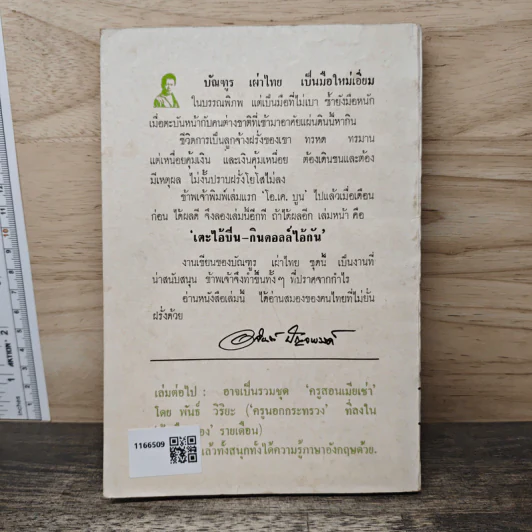 บัณฑูร เผ่าไทย เป็นมือใหม่เอี่ยม
ในบรรณพิภพ แต่เป็นมือที่ไม่เบา ซ้ำยังมือหนัก
เมื่อตะบันหน้ากับคนต่างชาติที่เข้ามาอาศัยแผ่นดินนี้หากิน
ชีวิตการเป็นลูกจ้างฝรั่งของเขา ทรหด ทรมาน
แต่เหนื่อยคุ้มเงิน และเงินคุ้มเหนื่อย ต้องเดินชนและต้อง
มีเหตุผล ไม่งั้นปราบฝรั่งโอไสไม่ลง
ข้าพเจ้าพิมพ์เล่มแรก 'โอ.เค. บูน' ไปแล้วเมื่อเดือน
ก่อน ได้ผลดี จึงลองเล่มนี้อีกที ถ้าได้ผลอีก เล่มหน้า คือ
'เตะไอ้บื่น-กินดอลล์ไอ้กัน'
งานเขียนของบัณฑูร เผ่าไทย ชุดนี้ เป็นงานที่
น่าสนับสนุน ข้าพเจ้าจึงทำขึ้นทั้งๆ ที่ปราศจากกำไร
อ่านหนังสือเล่มนี้ ได้อ่านสมองของคนไทยที่ไม่ยั่น
ฝรั่งด้วย
เล่มต่อไป : อาจเป็นรวมชุด 'ครูสอนเมียเช่า'
โดย พันธ์ วิริยะ ('ครูนอกกระทรวง' ที่ลงใน
รายเดือน)
แล้วทั้งสนุกทั้งได้ความรู้ภาษาอังกฤษด้วย.
1166509